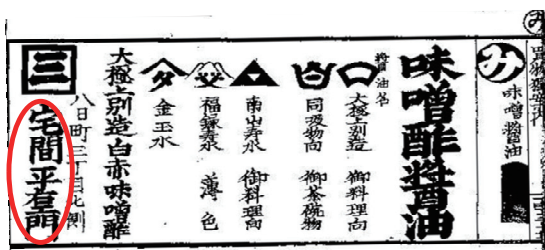 味噌醤油
味噌酢醤油
醤油名
大極別造 御料理向
同吸物向 御茶碗物
南山寿水 御料理向
福禄寿水 薄色
金玉水
大極上別造白赤味噌酢
八日町三丁目北側
三
宅間平右衛門